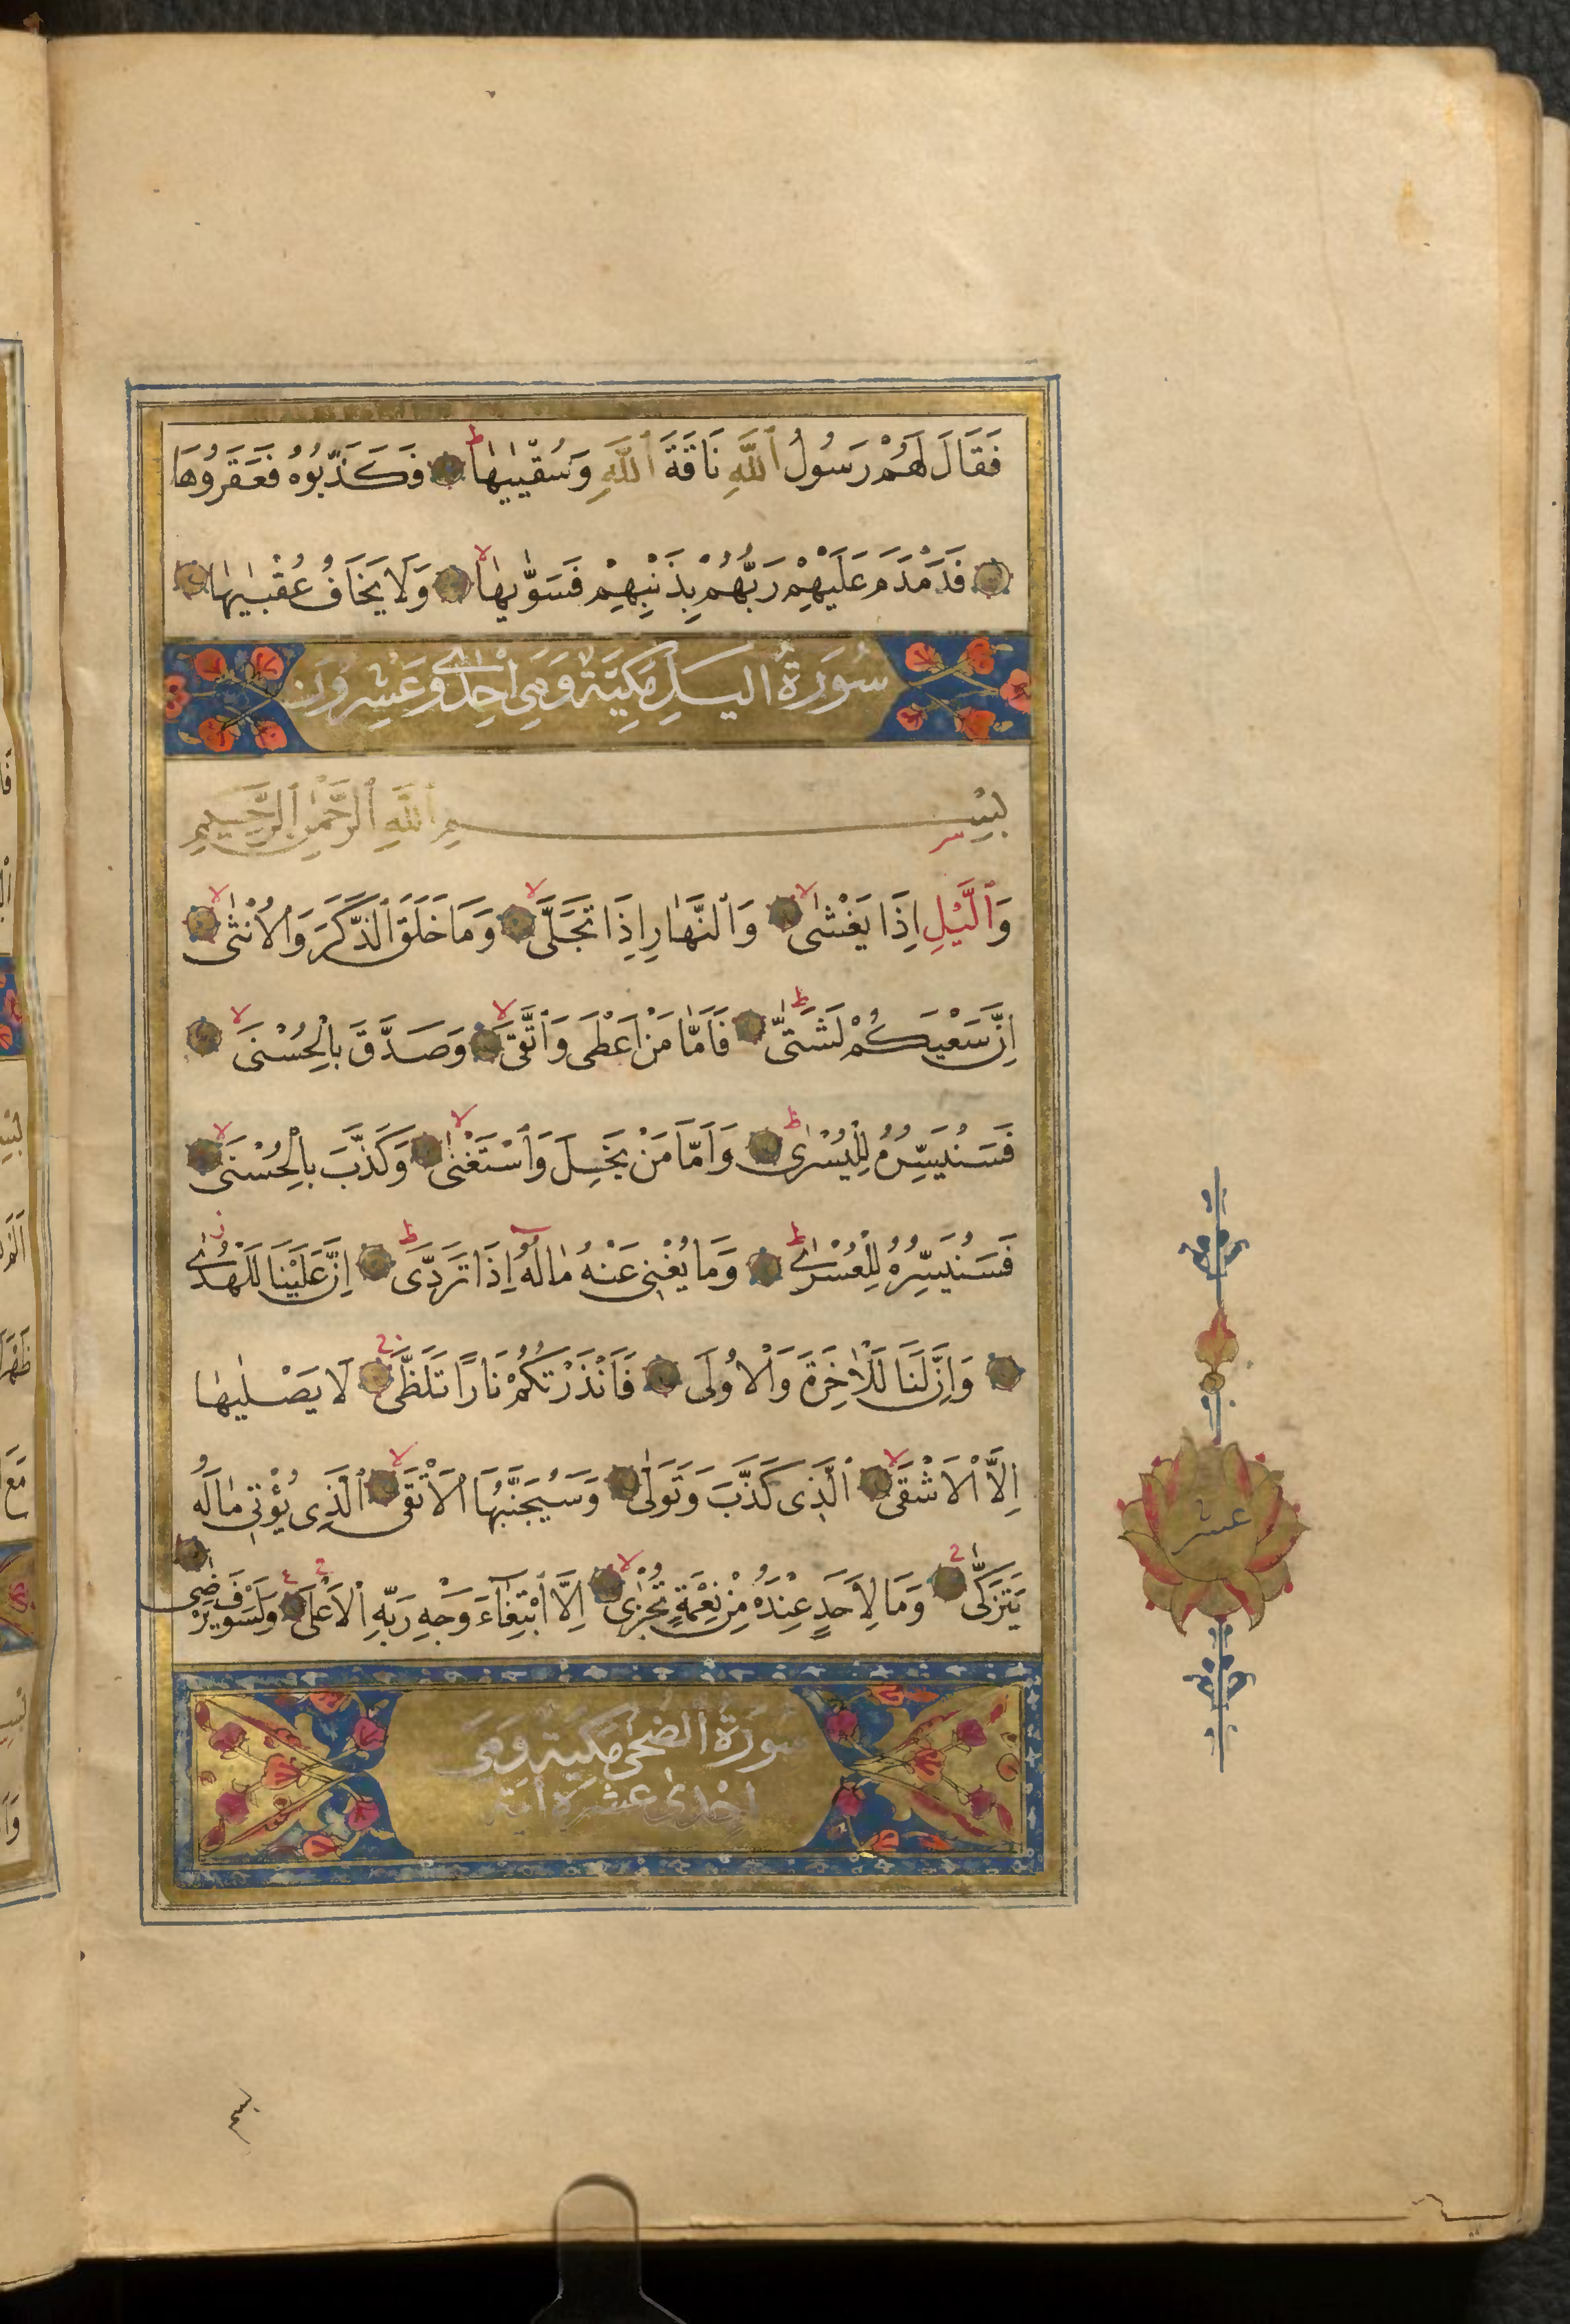 فَقَالَ لَهُمْ رَسُولُ ٱللَّهِ نَاقَةَ ٱللَّهِ وَسُقْيٰيهٰا ط فَكَذَّبُوُهُ فَعَقَرُوُهَا
فَدَمْدَمَ عَلَيْهِمْ رَبُّهُمْ بِذَنْبِهِمْ فَسَوّٰيهٰا لا وَلَا يَخَافُ عُقْبٰيهٰا
سُورَةُ اليلِ مَكِيَّة وَهِيَ اِحْدٰى وَعَشِرُونَ
بِسْمِ ٱللَّهِ ٱلرَّحْمٰنِ ٱلرَّحِيمِ
وَٱلَّيْلِ اِذَا يَغْشٰى لا وَٱلنَّهٰارِ اِذَا تَجَلَّى لا وَمَا خَلَقَ ٱلذَّكَرَ وَٱلْاُنْثٰى لا
اِنَّ سَعْيَكُمْ لَشَتّٰى ط فَاَمّٰا مَنْ اَعْطَى وَٱتَّقَى لا وَصَدَّقَ بِالْحُسْنَى لا
فَسَنُيَسِّرُهُ لِلْيُسْرٰى ط وَاَمَّا مَنْ بَخِلَ وَٱسْتَغْنٰى لا وَكَذَّبَ بِالْحُسْنَى لا
فَسَنُيَسِّرُهُ لِلْعُسْرٰى ط وَمَا يُغْنِى عَنْهُ مٰالُهُٓ اِذَا تَرَدّٰى ط اِنَّ عَلَيْنَا لَلْهُدٰى ز
وَاِنَّ لَنَا لَلْاٰخِرَةَ وَٱلْاُولَى فَاَنْذَرْتُكُمْ نَارًا تَلَظَّى ج لَا يَصْلٰيهٰا
اِلَّا ٱلْاَشْقَى لا ٱلَّذِى كَذَّبَ وَتَوَلّٰى وَسَيُجَنَّبُهَا ٱلْاَتْقَى لا ٱلَّذِى يُؤْتِى مٰالَهُ
يَتَزَكّٰى ج وَمَا لِاَحَدٍ عِنْدَهُ مِنْ نِعْمَةٍ تُجْزٰى لا اِلَّا ٱبْتِغٰٓاءَ وَجْهِ رَبِّهِ ٱلْاَعْلَى ج وَلَسَوْفَ يَرْضٰى
سُورَةُ ٱلضُحٰى مَكِيَة وَهِيَ
اِحْدٰى عَشْرَةَ اٰيَة
عشر
بسم